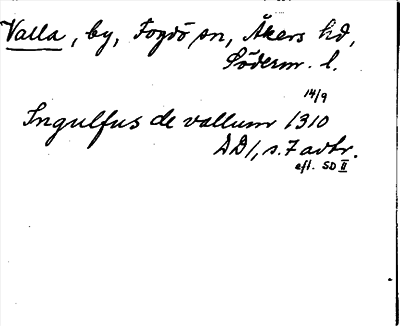 Valla, by, Fogdö sn, Åkers hd,
Söderm. l.
14/9
Ingulfus de vallum 1310
DD1, s. 7 avtr.
eft. SD II